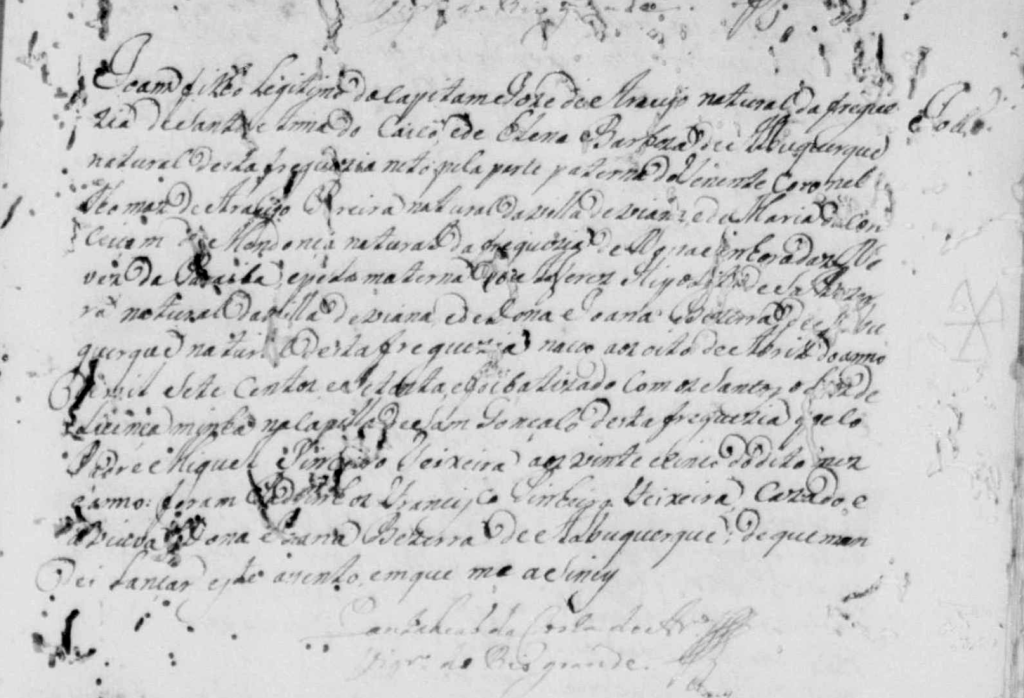 Vigrº do Rio grande
Joam filho legitimo do Capitam Joze de Araujo natural da fregue
zia de Santa Anna do Caico, e de Elena Barboza de Albuquerque
natural desta freguezia neto pela parte paterna do Tenente Coronel
Thomaz de Araujo Pereira natural da villa de vianna, e de Maria da Con
ceicam de Mendonca natural da freguezia de Nossa Senhora das Ne
vez da Paraiba, e pela materna de
ra natural da villa de viana, e de Dona Joana Bezerra de Albu
querque natural desta freguezia: naceo aos oito de Abril do anno
de mil Sete Centos e setenta, e foi batizado com os Santos oleos de
licença minha na capella de Sam Gonçalo desta freguezia pelo
Padre Miguel Pinheiro Teixeira aos vinte e cinco do dito mez
e anno: foram Padrinhos Francisco Pinheiro Teixeira, Cazado, e
a viuva Dona Joana Bezerra de Albuquerque; de que man
Dei lançar este acento, em que me asiney
Pantaleão da Costa de Arº
Vigrº do Rio grande.
Joam